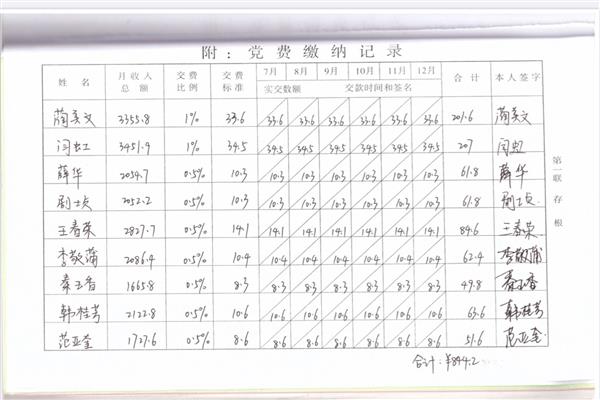 附：党费缴纳记录
姓名 月收入总额 交费比例 交费标准 7月 8月 9月 10月 11月 12月 合计 本人签字
实交数额 交款时间和签名
蔺美文 3355.8 1% 33.6 33.6 33.6 33.6 33.6 33.6 33.6 201.6 蔺美文
闫虹 3451.9 1% 34.5 34.5 34.5 34.5 34.5 34.5 34.5 207 闫虹
薛华 2054.7 0.5% 10.3 10.3 10.3 10.3 10.3 10.3 10.3 61.8 薛华
尉士贞 2052.2 0.5% 10.3 10.3 10.3 10.3 10.3 10.3 10.3 61.8 尉士贞
王春荣 2827.7 0.5% 14.1 14.1 14.1 14.1 14.1 14.1 14.1 84.6 王春荣
李敬蒲 2086.4 0.5% 10.4 10.4 10.4 10.4 10.4 10.4 10.4 62.4 李敬蒲
秦玉香 1665.8 0.5% 8.3 8.3 8.3 8.3 8.3 8.3 8.3 49.8 秦玉香
韩桂芳 2122.8 0.5% 10.6 10.6 10.6 10.6 10.6 10.6 10.6 63.6 韩桂芳
范亚奎 1727.6 0.5% 8.6 8.6 8.6 8.6 8.6 8.6 8.6 51.6 范亚奎
合计：¥844.2
第一联 存根